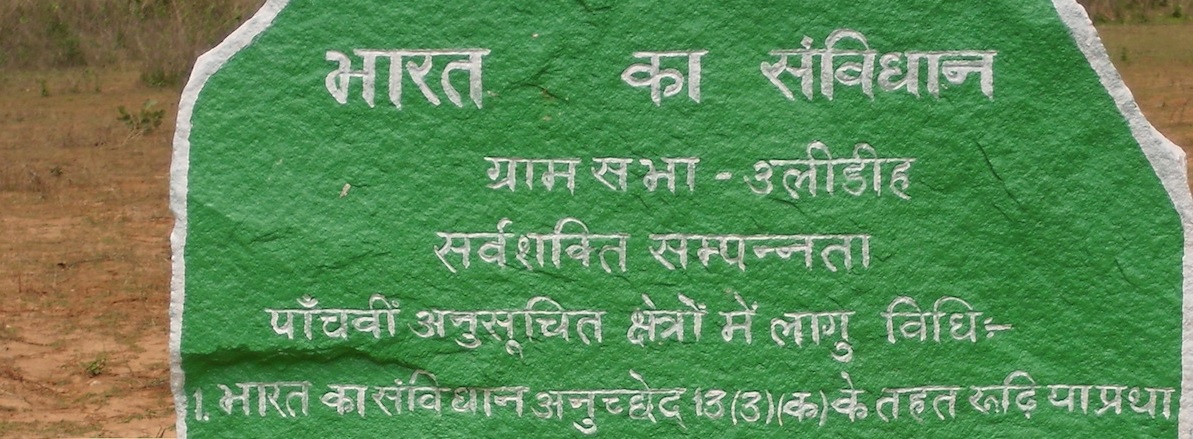 भारत का संविधान
ग्राम सभा - उलीडीह
सर्वशक्ति सम्पन्नता
पाँचवीं अनुसूचित क्षेत्रों में लागु विधि:-
1. भारत का संविधान अनुच्छेद 13(3)(क) के तहत रूढ़ि या प्रथा